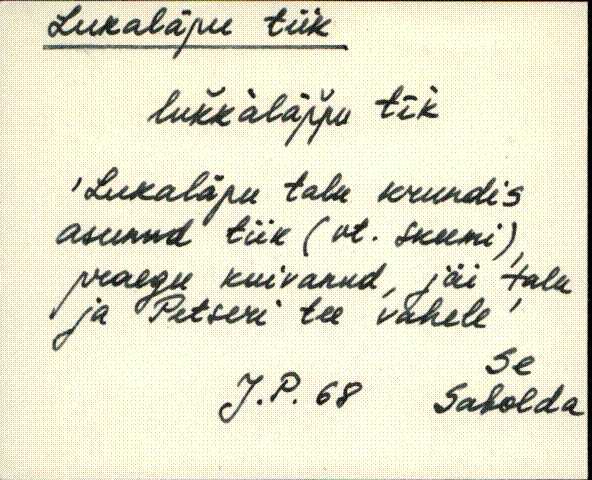 Lukaläpu tiik
lukkàläppu tīk
'Lukaläpu talu krundis
asunud tiik (vt. skeemi),
praegu kuivanud, jäi talu
ja Petseri tee vahele'
Se
J.P. 68 Sabolda